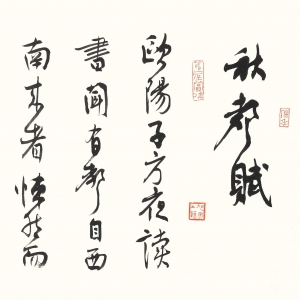 秋聲賦
歐陽子方夜讀
書聞有聲自西
南來者悚然而